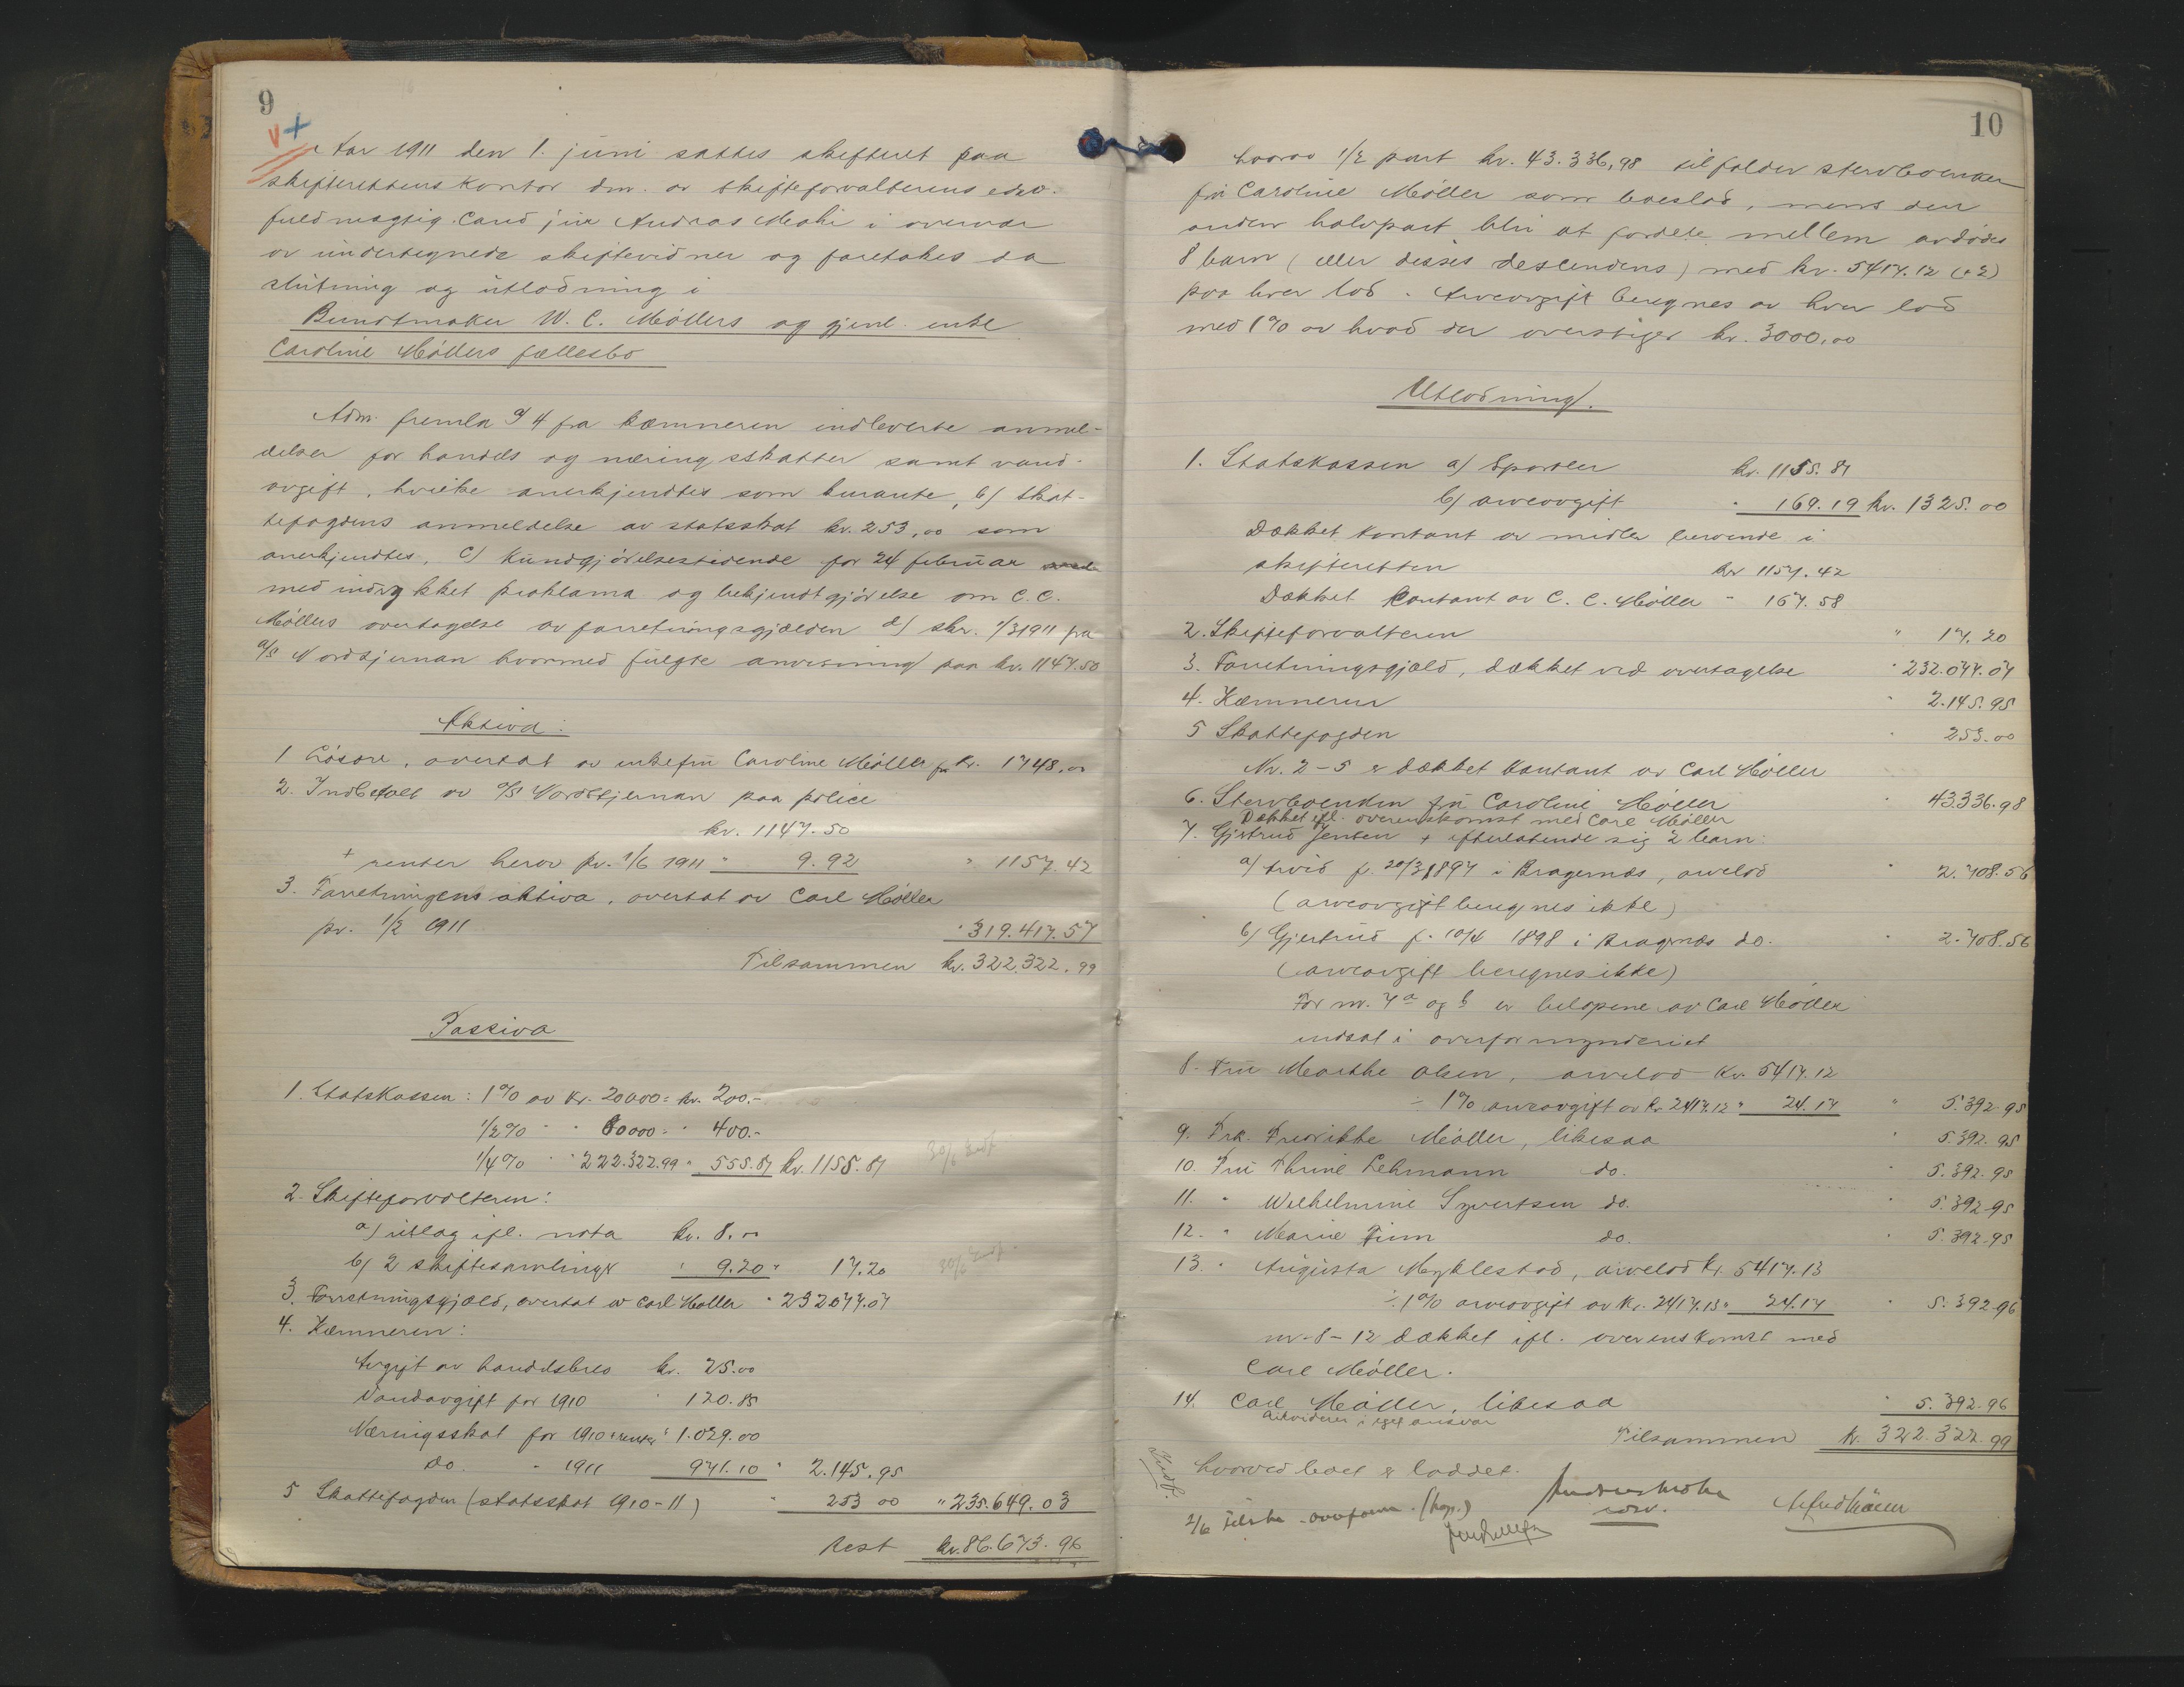 9
Aar 1911 den 1. juni sattes skifteret paa
skifterettens kontor dm. av skifteforvalterens edsv.
fuldmægtig. Cand jur Andreas Mohr i overvær
av undertegnede skiftevidner og foretokes da
slutning og utlodning i
Bundtmaker W. C. Möllers og gjenl. enke
Caroline Möllers fællesbo
Adm. fremla a) 4 fra kæmneren indleverte anmel-
delser for handels og næringsskatter samt vand-
avgift, hvilke anerkjendtes som kurante, b) skat-
tefogdens anmeldelse av statsskat kr. 253,00 som
anerkjendtes, c) kundgjörelsestidende for 24 februar
med indrykket proklama og bekjendtgjörelse om C. C.
Möllers overtagelse av forretningsgjælden d) skr. 1/3 1911 fra
a/s Nordstjernan hvormed fulgte anvisning paa kr. 1147.50
Aktiva:
1 Lösöre, overtat av enkefru Caroline Möller for kr. 1748,00
2. Indbetalt av a/s Nordstjernan paa police
kr. 1147.50
+ renter herav pr. 1/6 1911 " 9.92 " 1157.42
3. Forretningens aktiva, overtat av Carl Möller
pr. 1/2 1911 " 319.417.57
Tilsammen kr. 322.322.99
Passiva
1. Statskassen: 1% av kr. 20000 = kr. 200.-
1/2% " " 80000 = " 400.-
1/4% " " 222.322.99 " 555.81 kr. 1155.81
2. Skifteforvalteren:
a) utlæg ifl. nota kr. 8.00
b) 2 skiftesamlinger " 9.20 " 17.20
3. Forretningsgjæld, overtat av Carl Möller " 232.077.07
4. Kæmneren:
Avgift av handelsbrev kr. 25.00
Vandavgift for 1910 " 120.85
Næringsskat for 1910 + renter " 1.029.00
do. " 1911 971.10 " 2.145.95
5 Skattefogden (statsskat 1910-11) " 253 00 " 235.649.03
Rest kr. 86.673.96
10
hvorav 1/2 part kr. 43.336,98 tilfalder stervboenken
fru Caroline Möller som boeslod, mens den
anden halvpart blir at fordele mellem avdödes
8 barn (eller disses descendens) med kr. 5417.12 (+2)
paa hver lod. Arveavgift beregnes av hver lod
med 1% av hvad der overstiger kr. 3000,00
Utlodning.
1. Statskassen a) Sportler kr. 1155.81
b) arveavgift " 169.19 kr. 1325.00
Dækket kontant av midler beroende i
skifteretten kr 1157.42
Dækket kontant av C. C. Möller " 167.58
2. Skifteforvalteren " 17.20
3. Forretningsgjæld, dækket ved overtagelse " 232.077.07
4. Kæmneren " 2.145.95
5 Skattefogden " 253.00
Nr. 2-5 er dækket kontant av Carl Möller
6. Stervboenken fru Caroline Möller " 43.336.98
Dækket ifl. overenskomst med Carl Möller
7. Gjertrud Jensen + efterlatende sig 2 barn:
a) Arvid f. 20/3 1897 i Bragernæs, arvelod " 2.708.56
(arveavgift beregnes ikke)
b) Gjertrud f. 10/4 1898 i Bragernæs do. " 2.708.56
(arveavgift beregnes ikke)
For nr. 7 a og b er belöpene av Carl Möller
indsat i overformynderiet
8. Fru Marthe Olsen, arvelod kr. 5417.12
÷ 1% arveavgift av kr 2417.12 " 24.17 " 5.392.95
9. Frk. Fredrikke Möller, likesaa " 5.392.95
10. Fru Thrine Lehmann do. " 5.392.95
11. " Wilhelmine Syvertsen do. " 5.392.95
12. " Marie Finn do. " 5.392.95
13. " Augusta Myklestad, arvelod kr. 5417.13
÷ 1% arveavgift av kr. 2417.13 " 24.17 " 5.392.96
nr. 8-12 dækket ifl. overenskomst med
Carl Möller.
14. Carl Möller, likesaa " 5.392.96
likviderer i eget ansvar
Tilsammen kr. 322.322.99
hvorved boet er loddet.
Andreas Mohr
edsv.